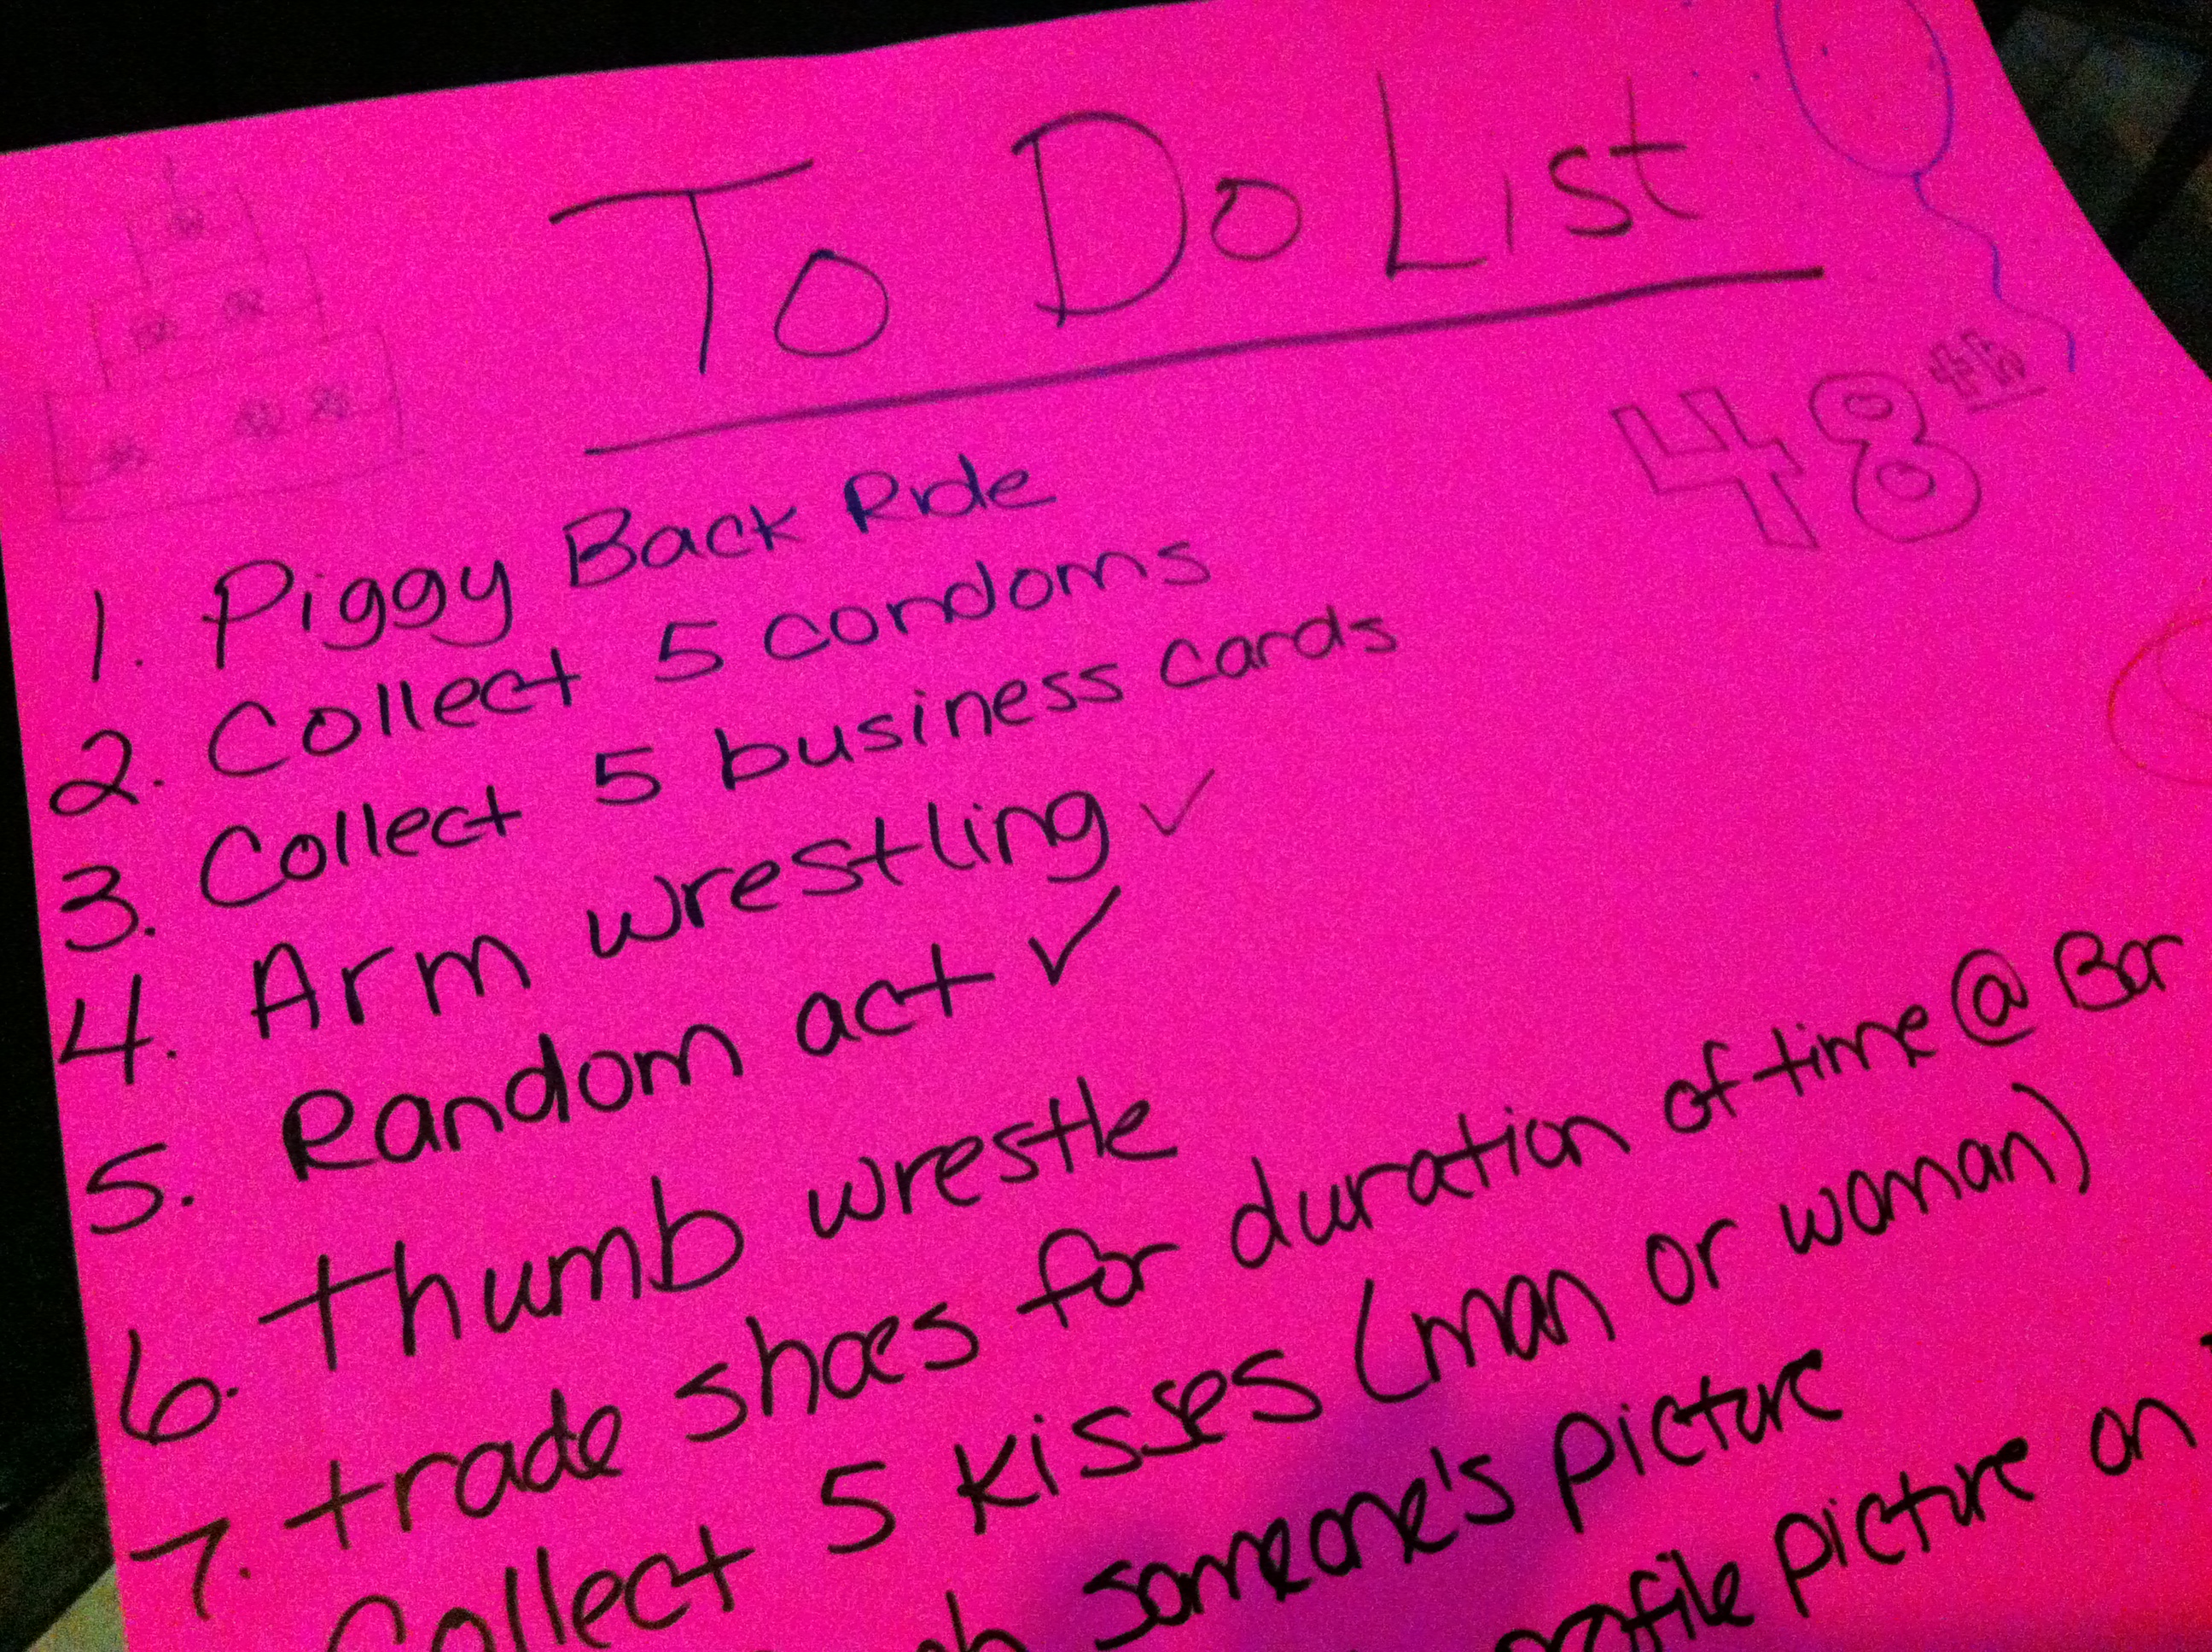 To Do List
48th
1. Piggy Back Ride
2. Collect 5 condoms
3. Collect 5 business cards
4. Arm wrestling ✓
5. Random act ✓
6. thumb wrestle
7. trade shoes for duration of time @ Bar
Collect 5 kisses (man or woman)
someone's picture
profile picture on